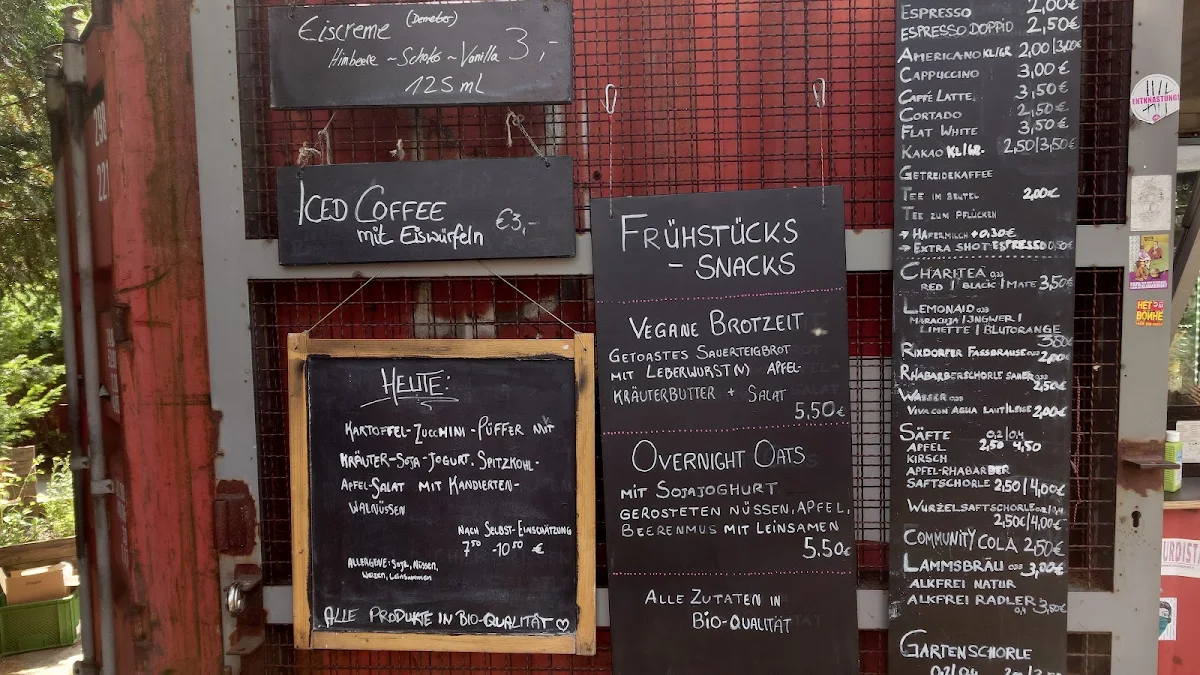 Eiscreme (Demeter)
Himbeere ~ Schoko ~ Vanilla 3,-
125 ml
ICED COFFEE
mit Eiswürfeln €3,-
HEUTE:
KARTOFFEL-ZUCCHINI-PUFFER MIT
KRÄUTER-SOJA-JOGURT, SPITZKOHL-
APFEL-SALAT MIT KANDIERTEN-
WALNÜSSEN
NACH SELBST-EINSCHÄTZUNG
7,50 - 10,50 €
ALLERGENE: SOJA, NÜSSEN,
WEIZEN, LEINSAMEN
ALLE PRODUKTE IN BIO-QUALITÄT ♡
FRÜHSTÜCKS
- SNACKS
VEGANE BROTZEIT
GETOASTES SAUERTEIGBROT
MIT LEBERWURST(N) APFEL-
KRÄUTERBUTTER + SALAT
5,50€
OVERNIGHT OATS
MIT SOJAJOGHURT
GERÖSTETEN NÜSSEN, APFEL,
BEERENMUS MIT LEINSAMEN
5,50€
ALLE ZUTATEN IN
BIO-QUALITÄT
ESPRESSO 2,00€
ESPRESSO DOPPIO 2,50€
AMERICANO KL/GR 2,00/3,00€
CAPPUCCINO 3,00€
CAFFÉ LATTE 3,50€
CORTADO 2,50€
FLAT WHITE 3,50€
KAKAO KL/GR. 2,50/3,50€
GETREIDEKAFFEE
TEE IM BEUTEL 2,00€
TEE ZUM PFLÜCKEN
→ HAFERMILCH +0,30€
→ EXTRA SHOT ESPRESSO 0,50€
CHARITEA 0,33
RED / BLACK / MATE 3,50€
LEMONAID 0,33
MARACUJA / INGWER /
LIMETTE / BLUTORANGE
3,50€
RIXDORFER FASSBRAUSE 0,33 2,00€
RHABARBERSCHORLE 0,33
2,50€
WASSER 0,33
VIVA CON AGUA LAUT/LEISE 2,00€
SÄFTE 0,2/0,4
APFEL 2,50 4,50
KIRSCH
APFEL-RHABARBER
SAFTSCHORLE 2,50/4,00€
WURZELSAFTSCHORLE 0,2/0,4
2,50€/4,00€
COMMUNITY COLA 2,50€
LAMMSBRÄU 0,33 3,00€
ALKFREI NATUR
ALKFREI RADLER
0,4 3,50€
GARTENSCHORLE
0,2/0,4
ENTKNASTUNG!
НЕТ
ВОЙНЕ
290
221